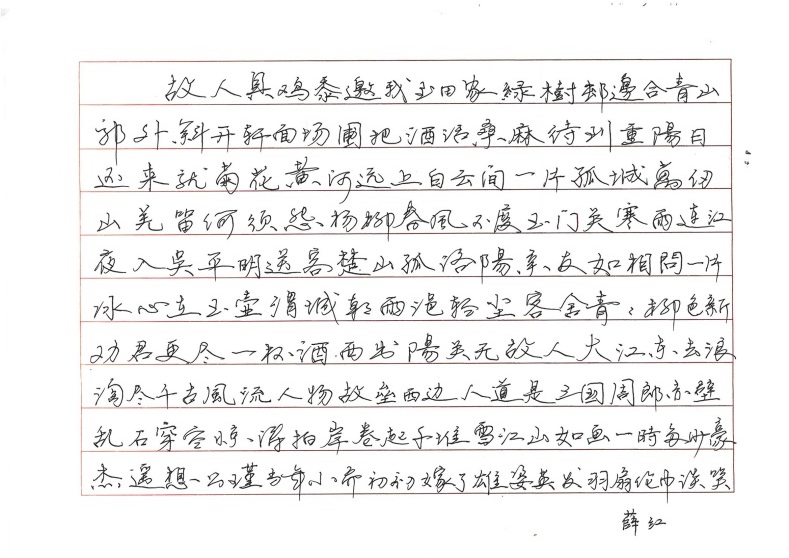 故人具鸡黍邀我至田家綠樹邨邊合青山
郭外斜开轩面场圃把酒话桑麻待到重陽日
还来就菊花黄河远上白云间一片孤城萬仞
山羌笛何须怨杨柳春風不度玉门关寒雨连江
夜入吴平明送客楚山孤洛陽亲友如相問一片
冰心在玉壶渭城朝雨浥轻尘客舍青々柳色新
劝君更尽一杯酒西出陽关无故人大江东去浪
淘尽千古風流人物故垒西边人道是三国周郎赤壁
乱石穿空惊涛拍岸卷起千堆雪江山如画一時多少豪
杰遥想公瑾当年小乔初初嫁了雄姿英发羽扇纶巾谈笑
薛红